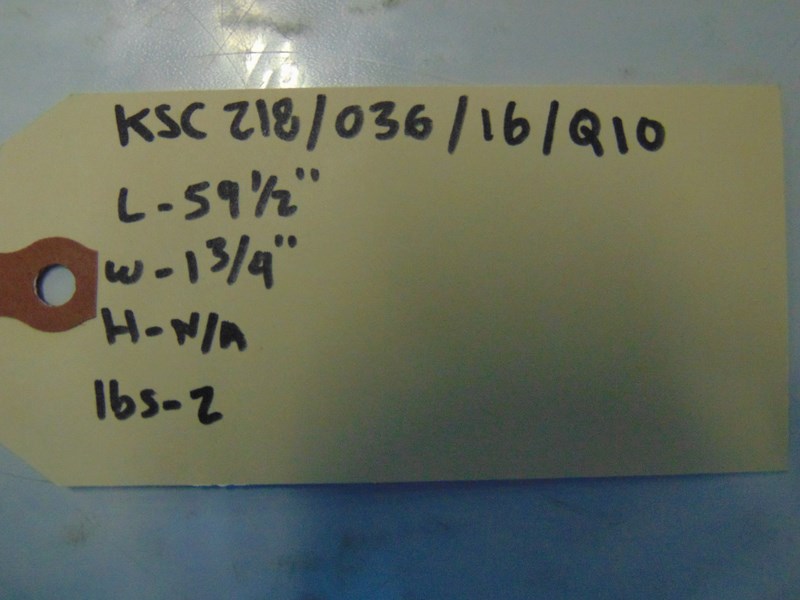 KSC 218/036/16/Q10
L-59 1/2"
W-1 3/4"
H-N/A
lbs-2